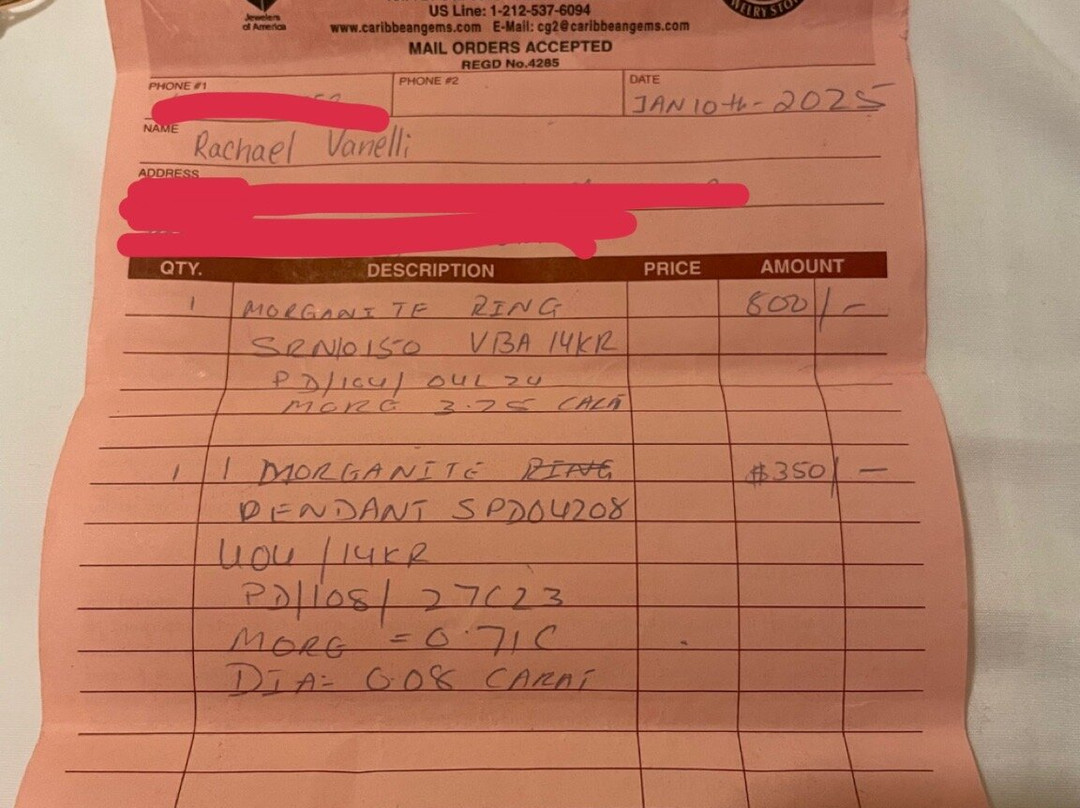 Jewelers
of America
US Line: 1-212-537-6094
www.caribbeangems.com E-Mail: cg2@caribbeangems.com
MAIL ORDERS ACCEPTED
REGD No.4285
PHONE #1
PHONE #2
DATE
JAN 10th - 2025
NAME
Rachael Vanelli
ADDRESS
QTY. DESCRIPTION PRICE AMOUNT
1 MORGANITE RING 800/-
SRN10150 VBA 14KR
PD/164/ 24
MORG 3.75
1 1 MORGANITE RING $350/-
PENDANT SPD04208
UOU/14KR
PD/108/ 27C23
MORG = 0.71C
DIA= 0.08 CARAT